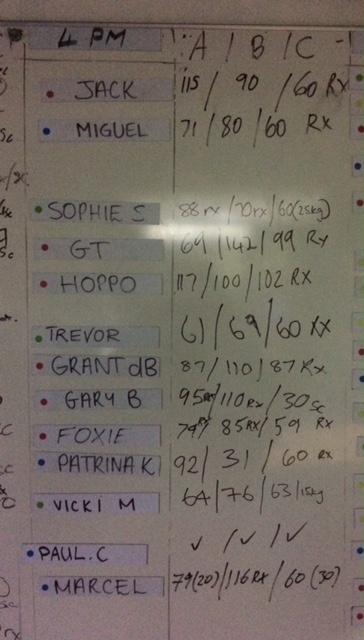 4 PM A / B / C
JACK 115 / 90 / 60 RX
MIGUEL 71 / 80 / 60 RX
SOPHIE S 88rx / 70rx / 60(25kg)
GT 69 / 142 / 99 RX
HOPPO 117 / 100 / 102 RX
TREVOR 61 / 69 / 60 RX
GRANT dB 87 / 110 / 87 Rx
GARY B 95RX / 110 Rx / 30 Sc
FOXIE 79RX / 85RX / 59 Rx
PATRINA K 92 / 31 / 60 RX
VICKI M 64 / 76 / 63 / 15kg
PAUL.C ✓ / ✓ / ✓
MARCEL 79(20) / 116 RX / 60 (30)